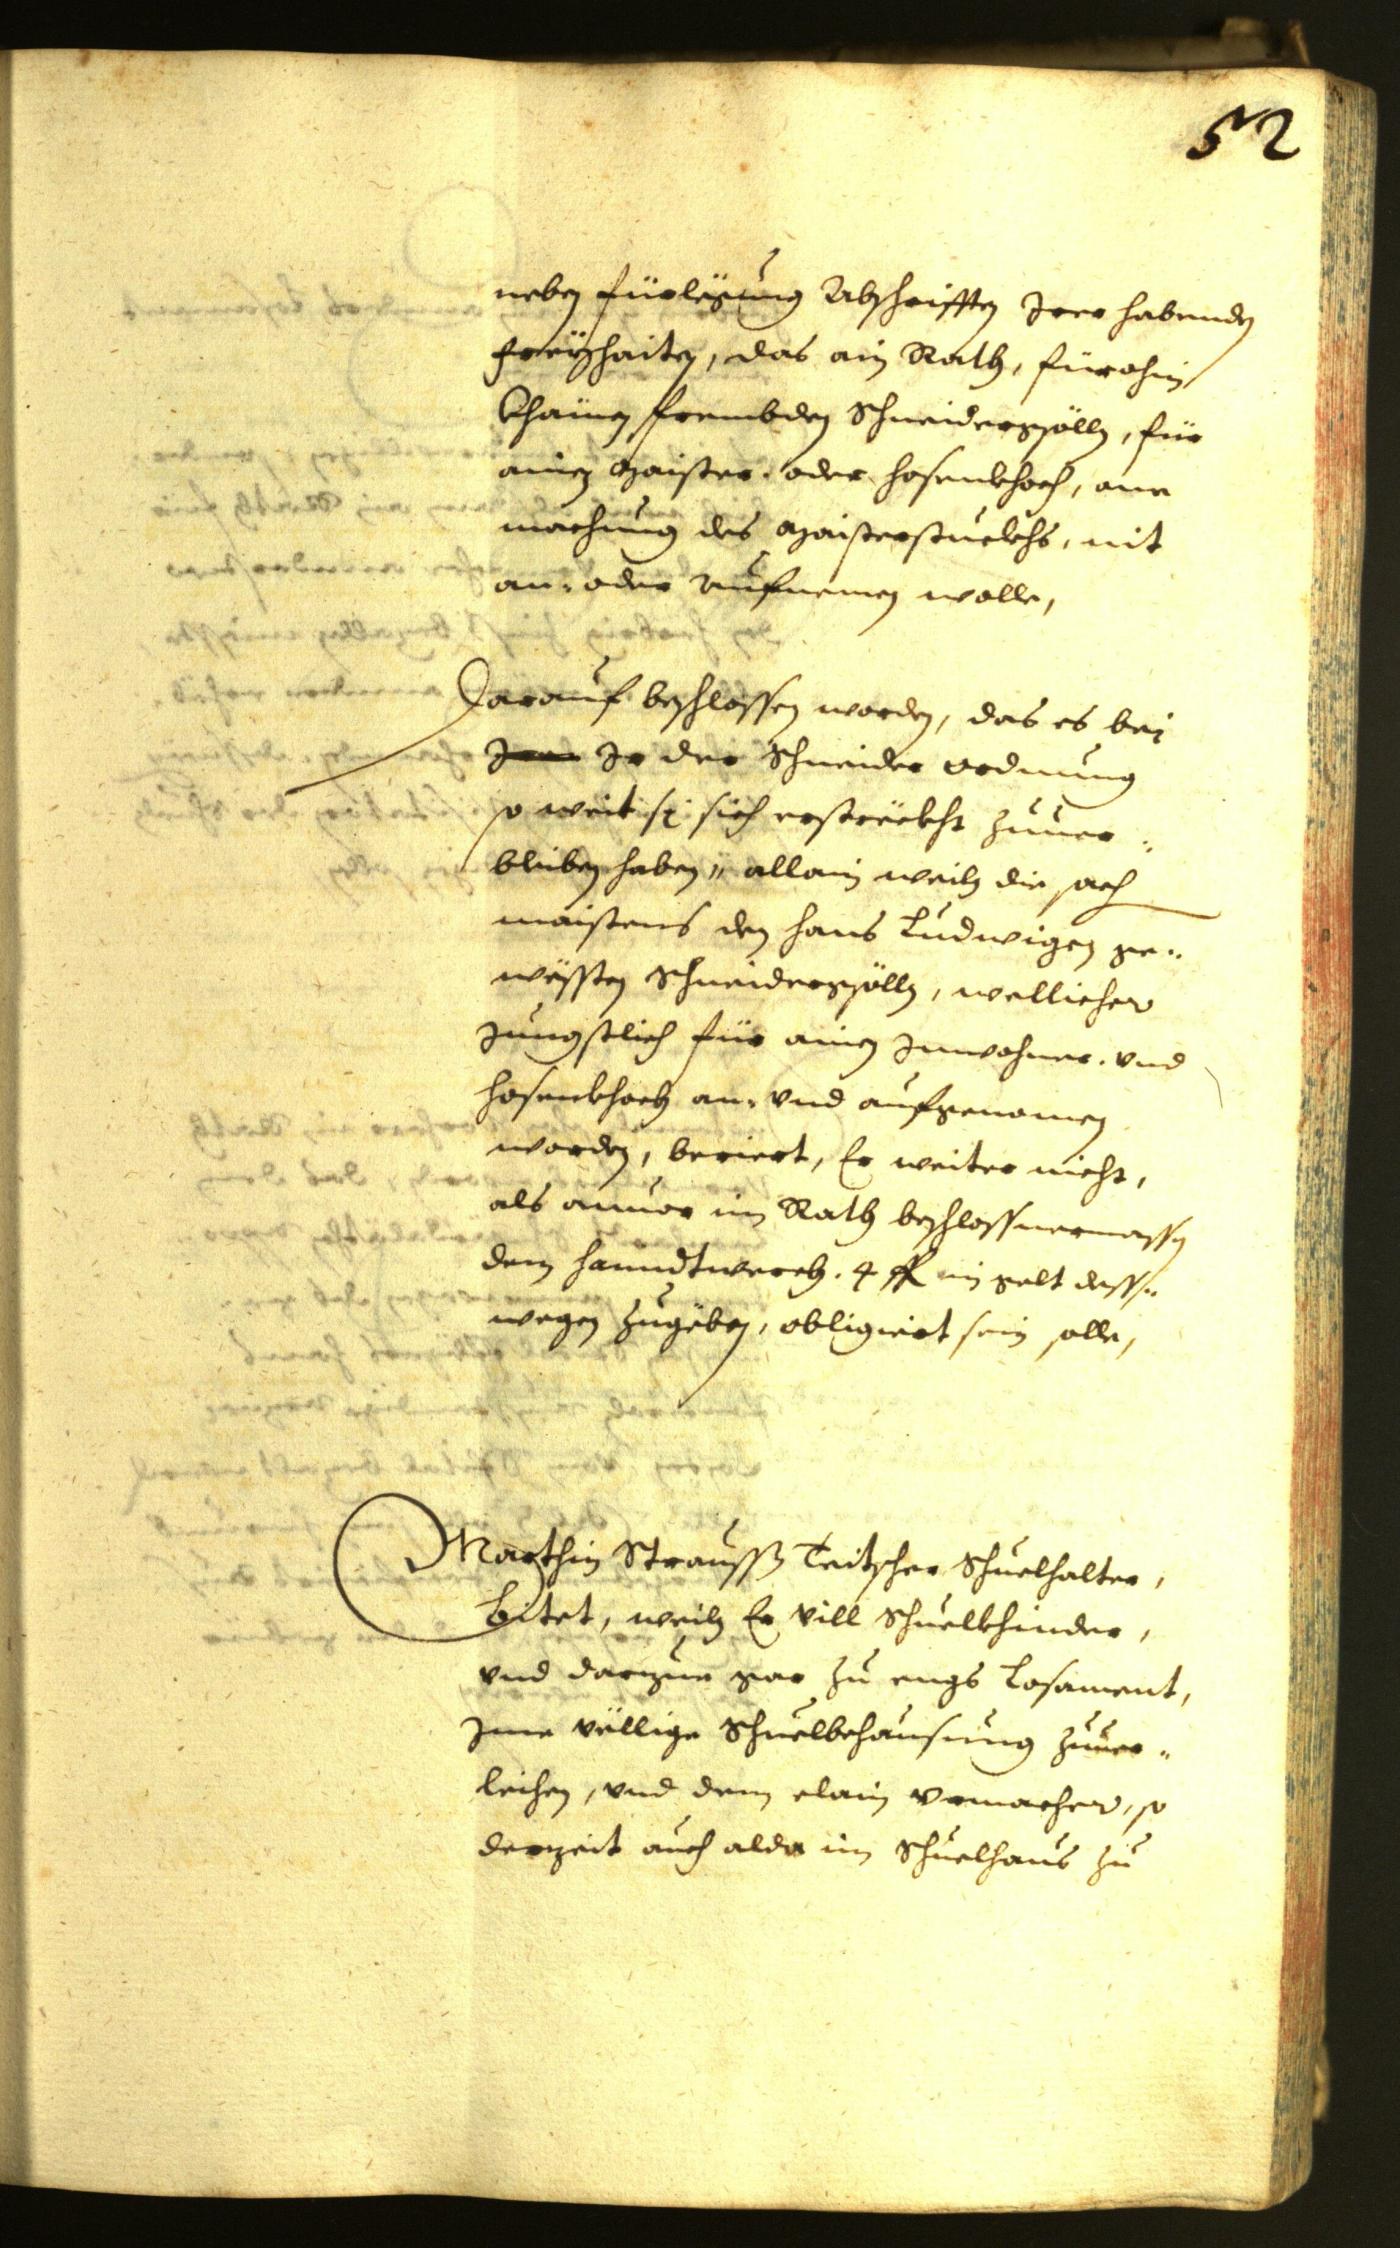 52
neben fürlegung Abschrifften Irer habenden
freÿhaiten, das ain Rath, fürohin
Khainen frembden Schneidersgsölln, für
ainen Maister. oder hosenkhoch, one
machung des Maisterstuckhs, nit
an- oder Aufnemen wolle,
Darauf beschlossen worden, das es bei
Ir der Schneider ordnung
so weit sÿ sich erstreckht zuuer„
bleiben haben„ allain weiln die sach
maistens den hans Ludwigen ge„
wessten Schneidersgsölln, wellicher
Jungstlich für ainen Inwohner. vnd
hosenkhoch an- vnd aufgenomen
worden, beriert, Er weiter nicht,
als anuor im Rath beschlossnermassen
dem handtwerch. 4 fl in gelt dess„
wegen zugeben, obligiert sein solle,
Marthin Strauss Teitscher Schuelhalter,
bitet, weiln Er vill Schuelkhinder,
vnd darzue gar zu engs Losament,
Ime völlige Schuelbehausung zuuer„
leihen, vnd dem clain Vrmacher, so
derzeit auch alda im Schuelhaus zu